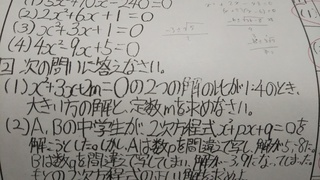 (2) 2x²+6x+1=0
(3) x²+3x-1=0
(4) 4x²-9x+5=0
2 次の問いに答えなさい。
(1) x²+3x+2m=0の2つの解の比が1:4のとき、
大きい方の解と、定数mを求めなさい。
(2) A,Bの中学生が2次方程式x²+px+q=0を
解こうとした。しかしAは数pを間違えて写して、解が-5,-8だ。
Bは数qを間違えて写してしまい、解が-3,9になってしまった。
もとの2次方程式の正しい解を求めよ